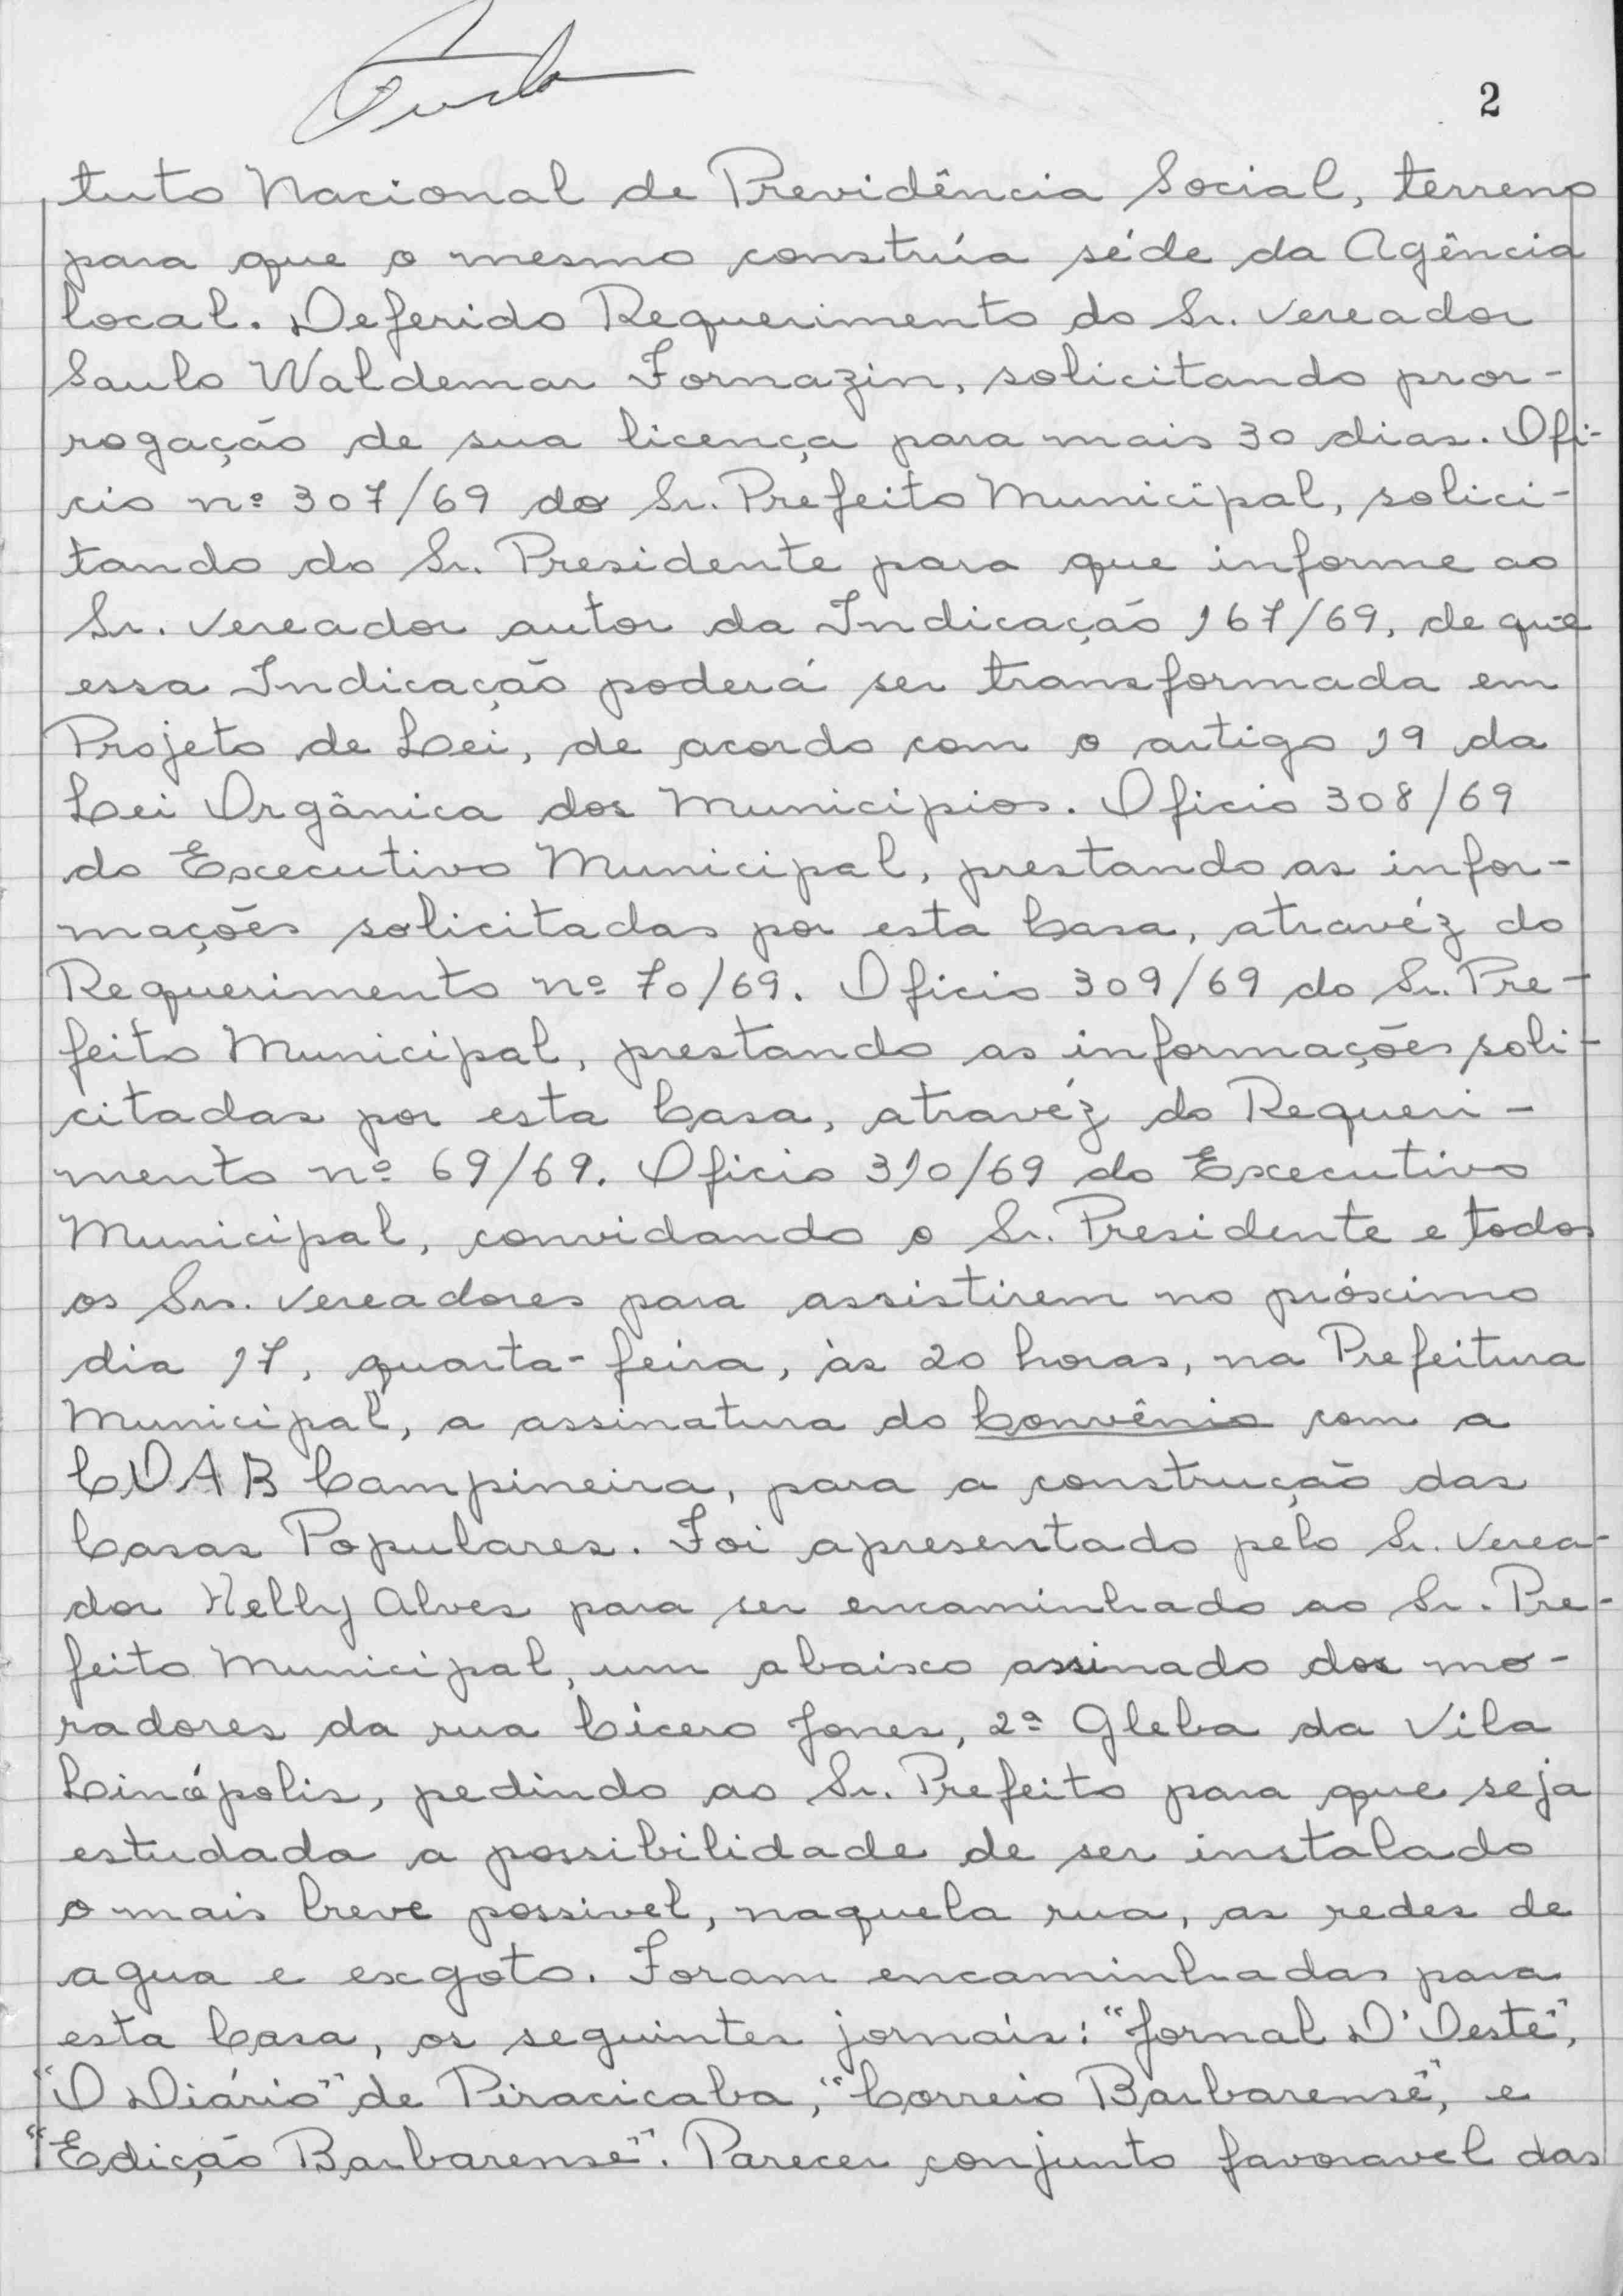 2
tuto Nacional de Previdência Social, terreno
para que o mesmo construía séde da Agência
local. Deferido Requerimento do Sr. Vereador
Saulo Waldemar Fornazin, solicitando pror-
rogação de sua licença para mais 30 dias. Ofi-
cio nº 307/69 do Sr. Prefeito Municipal, solici-
tando do Sr. Presidente para que informe ao
Sr. Vereador autor da Indicação 167/69, de que
essa Indicação poderá ser transformada em
Projeto de Lei, de acordo com o artigo 19 da
Lei Orgânica dos Municipios. Oficio 308/69
do Executivo Municipal, prestando as infor-
mações solicitadas por esta Casa, atravéz do
Requerimento nº 70/69. Oficio 309/69 do Sr. Pre-
feito Municipal, prestando as informações soli-
citadas por esta Casa, atravéz do Requeri-
mento nº 69/69. Oficio 310/69 do Executivo
Municipal, convidando o Sr. Presidente e todos
os Srs. Vereadores para assistirem no próximo
dia 17, quarta-feira, às 20 horas, na Prefeitura
Municipal, a assinatura do Convênio com a
COAB Campineira, para a construção das
Casas Populares. Foi apresentado pelo Sr. Verea-
dor Helly Alves para ser encaminhado ao Sr. Pre-
feito Municipal, um abaixo assinado dos mo-
radores da rua Cicero Jones, 2ª Gleba da Vila
Linópolis, pedindo ao Sr. Prefeito para que seja
estudada a possibilidade de ser instalado
o mais breve possivel, naquela rua, as redes de
agua e exgoto. Foram encaminhadas para
esta Casa, os seguintes jornais: "Jornal D'Oeste",
"O Diário" de Piracicaba, "Correio Barbarense", e
"Edição Barbarense". Parecer conjunto favoravel das